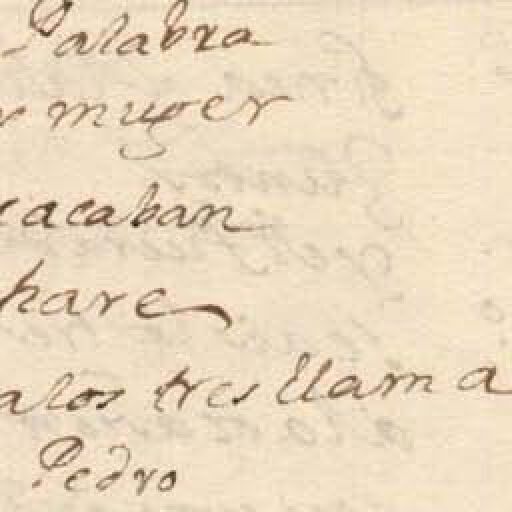 Palabra
r muger
cacaban
hare
a los tres llama
Pedro